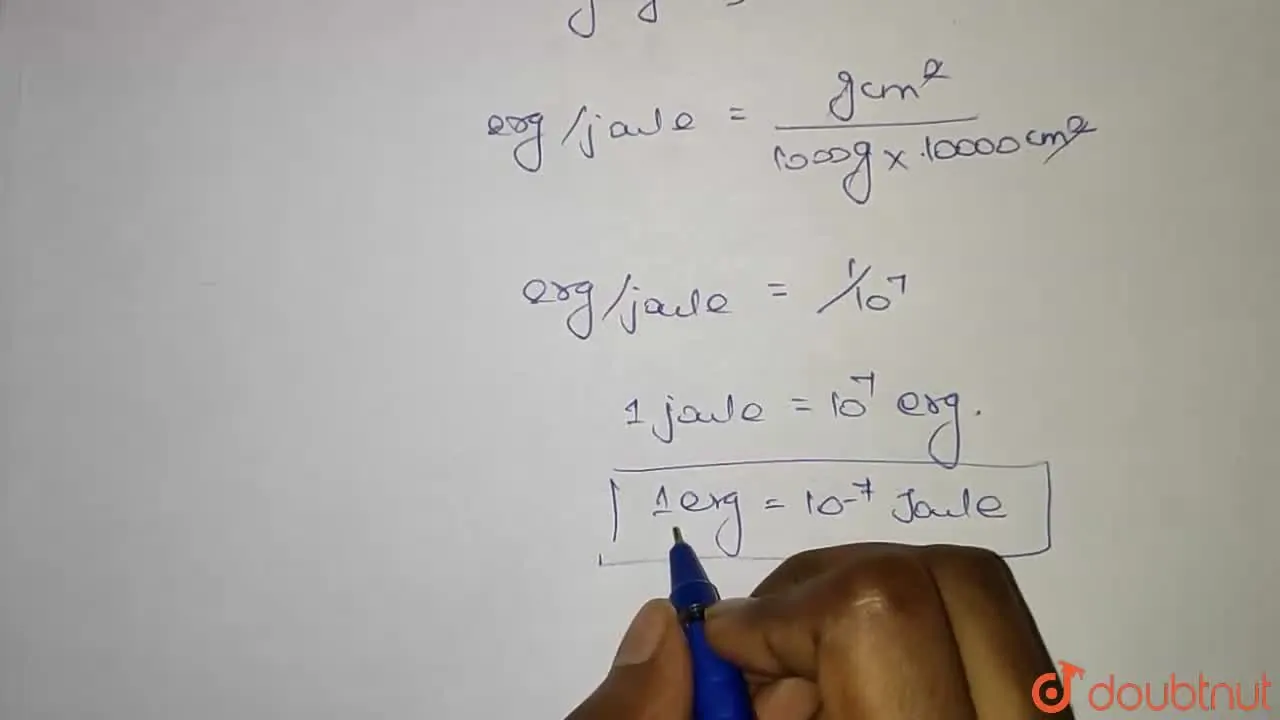 erg/joule = gcm²
1000g x 10000cm²
erg/joule = 1/10⁷
1 joule = 10⁷ erg.
1 erg = 10⁻⁷ Joule
doubtnut